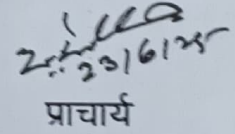 23/6/25
प्राचार्य